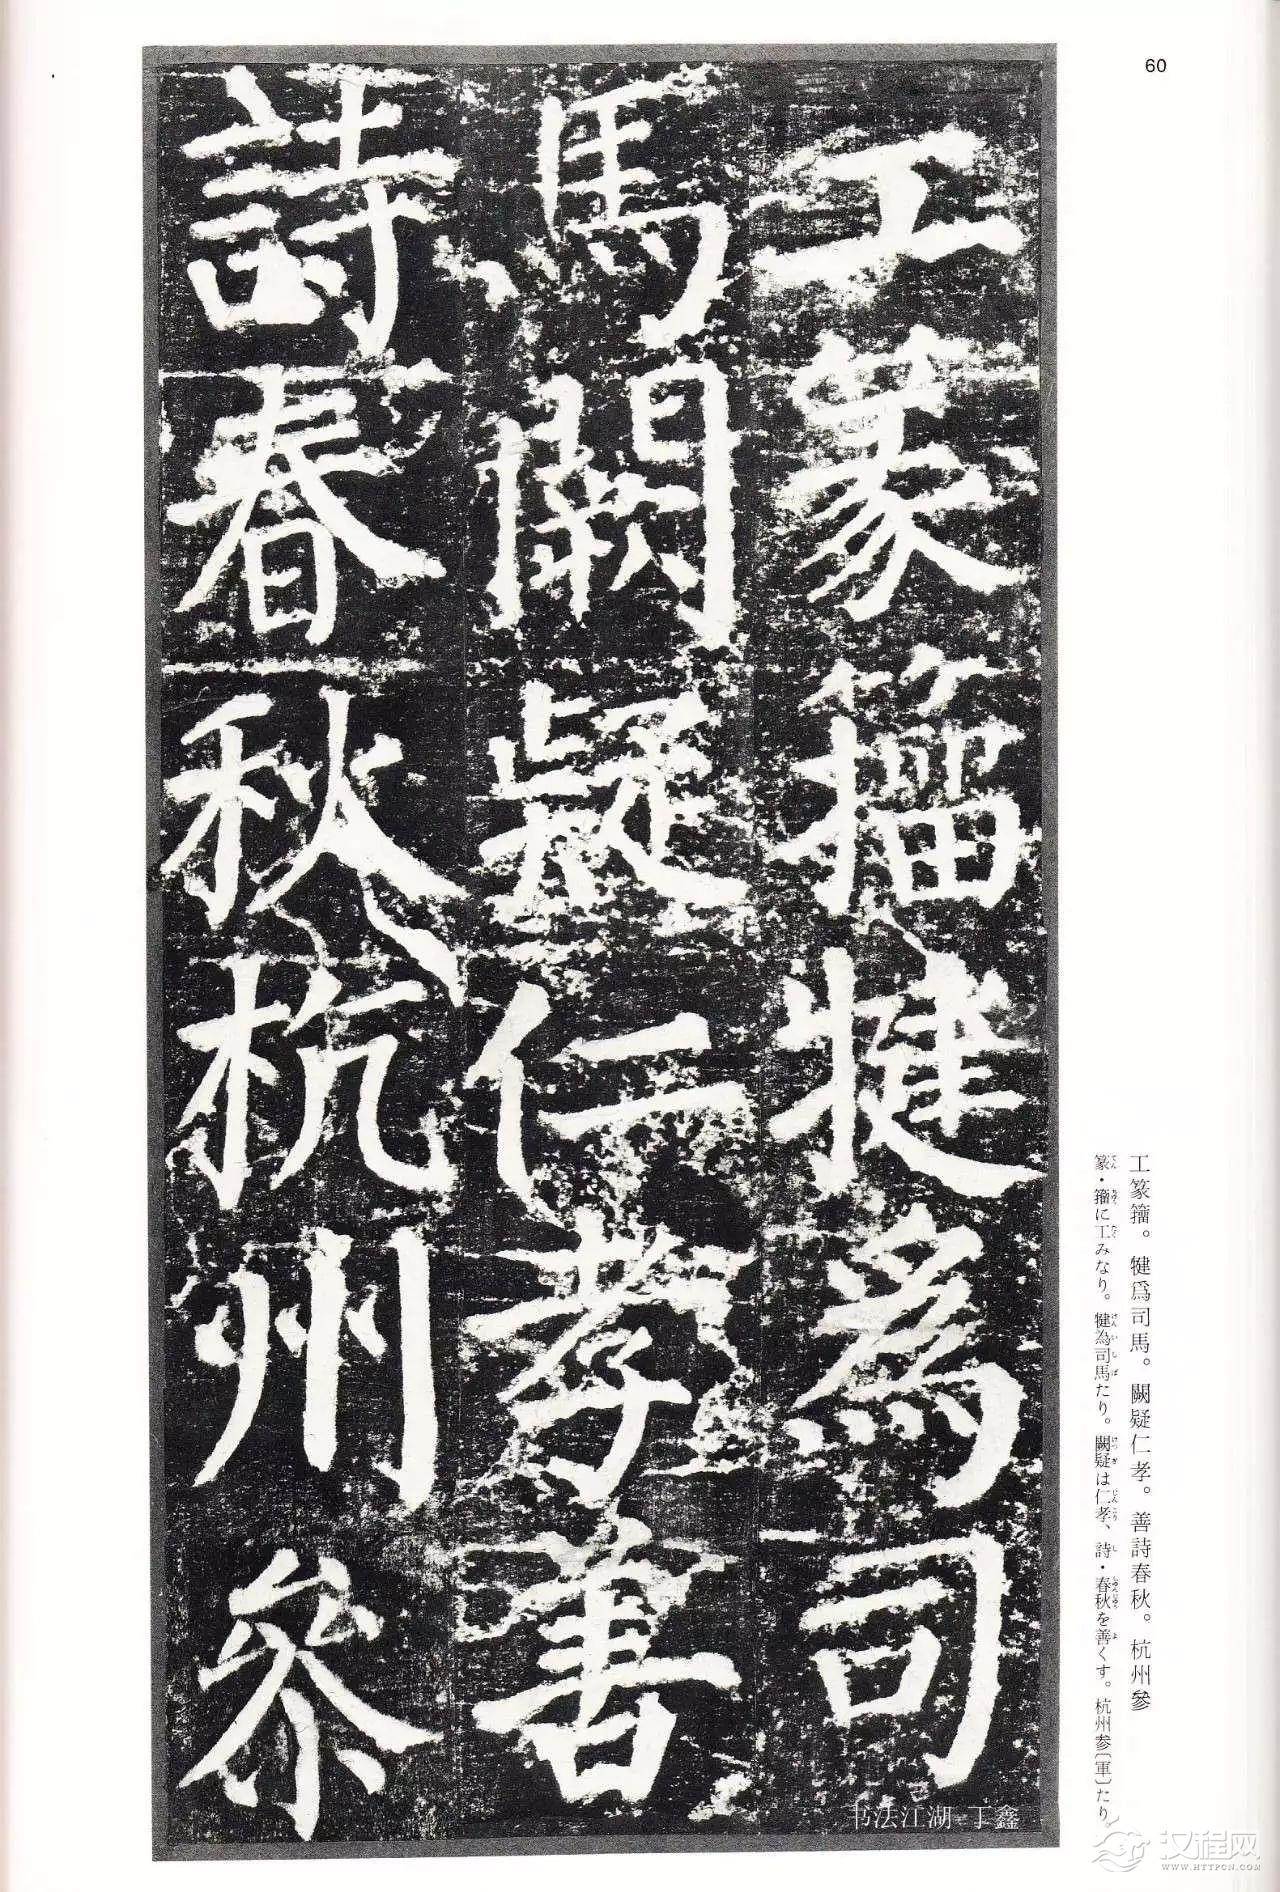 60
工篆籀犍爲司
馬闕疑仁孝善
詩春秋杭州參
工篆籀。犍爲司馬。闕疑仁孝。善詩春秋。杭州參
篆・籀に工みなり。犍為司馬たり。闕疑は仁孝、詩・春秋を善くす。杭州参〔軍〕たり。
书法江湖 丁鑫
汉程网
WWW.HTTPCN.COM